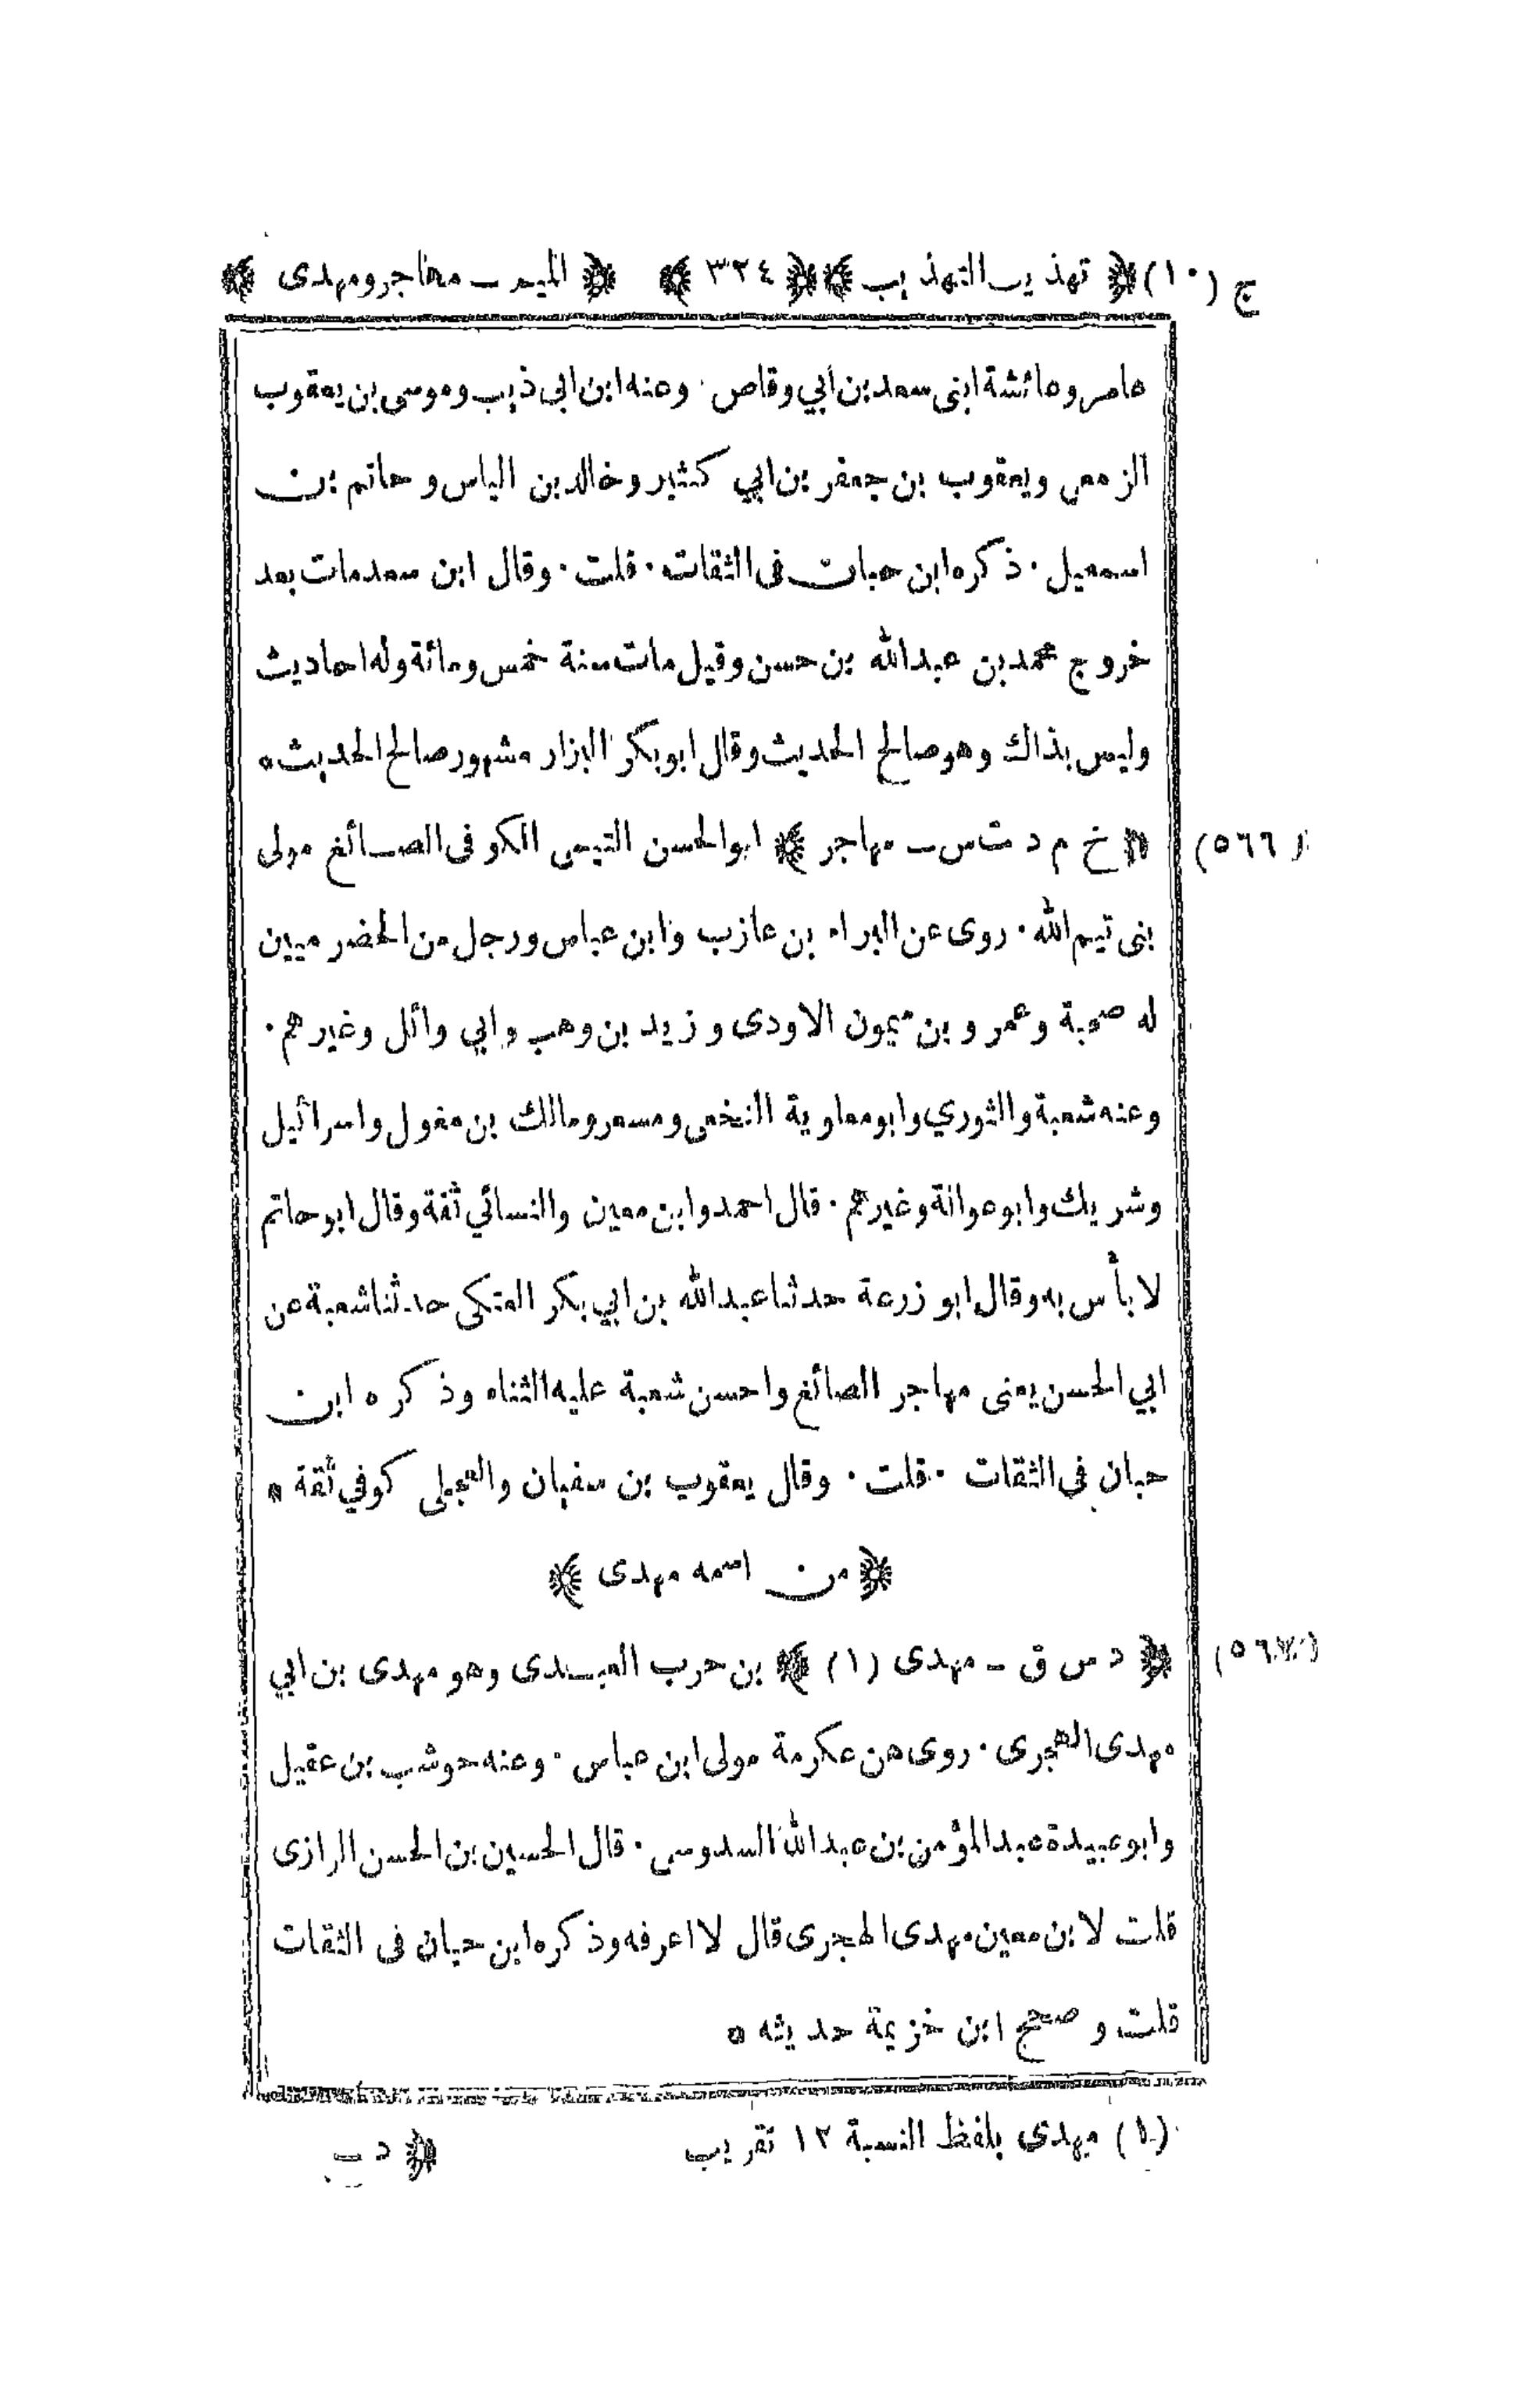 ج (١٠) ﴿ تهذيب التهذيب ﴾ ﴿ ٣٢٤ ﴾ ﴿ الميم ـ مهاجر ومهدى ﴾
عامر وعائشة ابنى سعد بن أبي وقاص · وعنه ابن ابى ذيب وموسى بن يعقوب
الزمعى ويعقوب بن جعفر بن ابي كثير وخالد بن الياس وحاتم بن
اسمعيل · ذكره ابن حبان فى الثقات · قلت · وقال ابن سعد مات بعد
خروج محمد بن عبد الله بن حسن وقيل مات سنة خمس ومائة وله احاديث
وليس بذاك وهو صالح الحديث وقال ابو بكر البزار مشهور صالح الحديث ه
(٥٦٦) ﴿ خ م د ت س ـ مهاجر ﴾ ابو الحسن التيمى الكوفى الصائغ مولى
بنى تيم الله · روى عن البراء بن عازب وابن عباس ورجل من الحضرميين
له صحبة وعمرو بن ميمون الاودى وزيد بن وهب وابي وائل وغيرهم ·
وعنه شعبة والثوري وابو معاوية النخعى ومسعر ومالك بن مغول واسرائيل
وشريك وابو عوانة وغيرهم · قال احمد وابن معين والنسائي ثقة وقال ابو حاتم
لا بأس به وقال ابو زرعة حدثنا عبد الله بن ابي بكر العتكى حدثنا شعبة عن
ابي الحسن يعنى مهاجر الصائغ واحسن شعبة عليه الثناء وذكره ابن
حبان فى الثقات · قلت · وقال يعقوب بن سفيان والعجلى كوفي ثقة ه
﴿ من اسمه مهدى ﴾
(٥٦٧) ﴿ د س ق ـ مهدى (١) ﴾ بن حرب العبدى وهو مهدى بن ابي
مهدى الهجرى · روى عن عكرمة مولى ابن عباس · وعنه حوشب بن عقيل
وابو عبيدة عبد المؤمن بن عبد الله السدوسى · قال الحسين بن الحسن الرازى
قلت لابن معين مهدى الهجرى قال لا اعرفه وذكره ابن حبان فى الثقات
قلت وصحح ابن خزيمة حديثه ه
(١) مهدى بلفظ النسبة ١٢ تقريب
﴿ د ـ